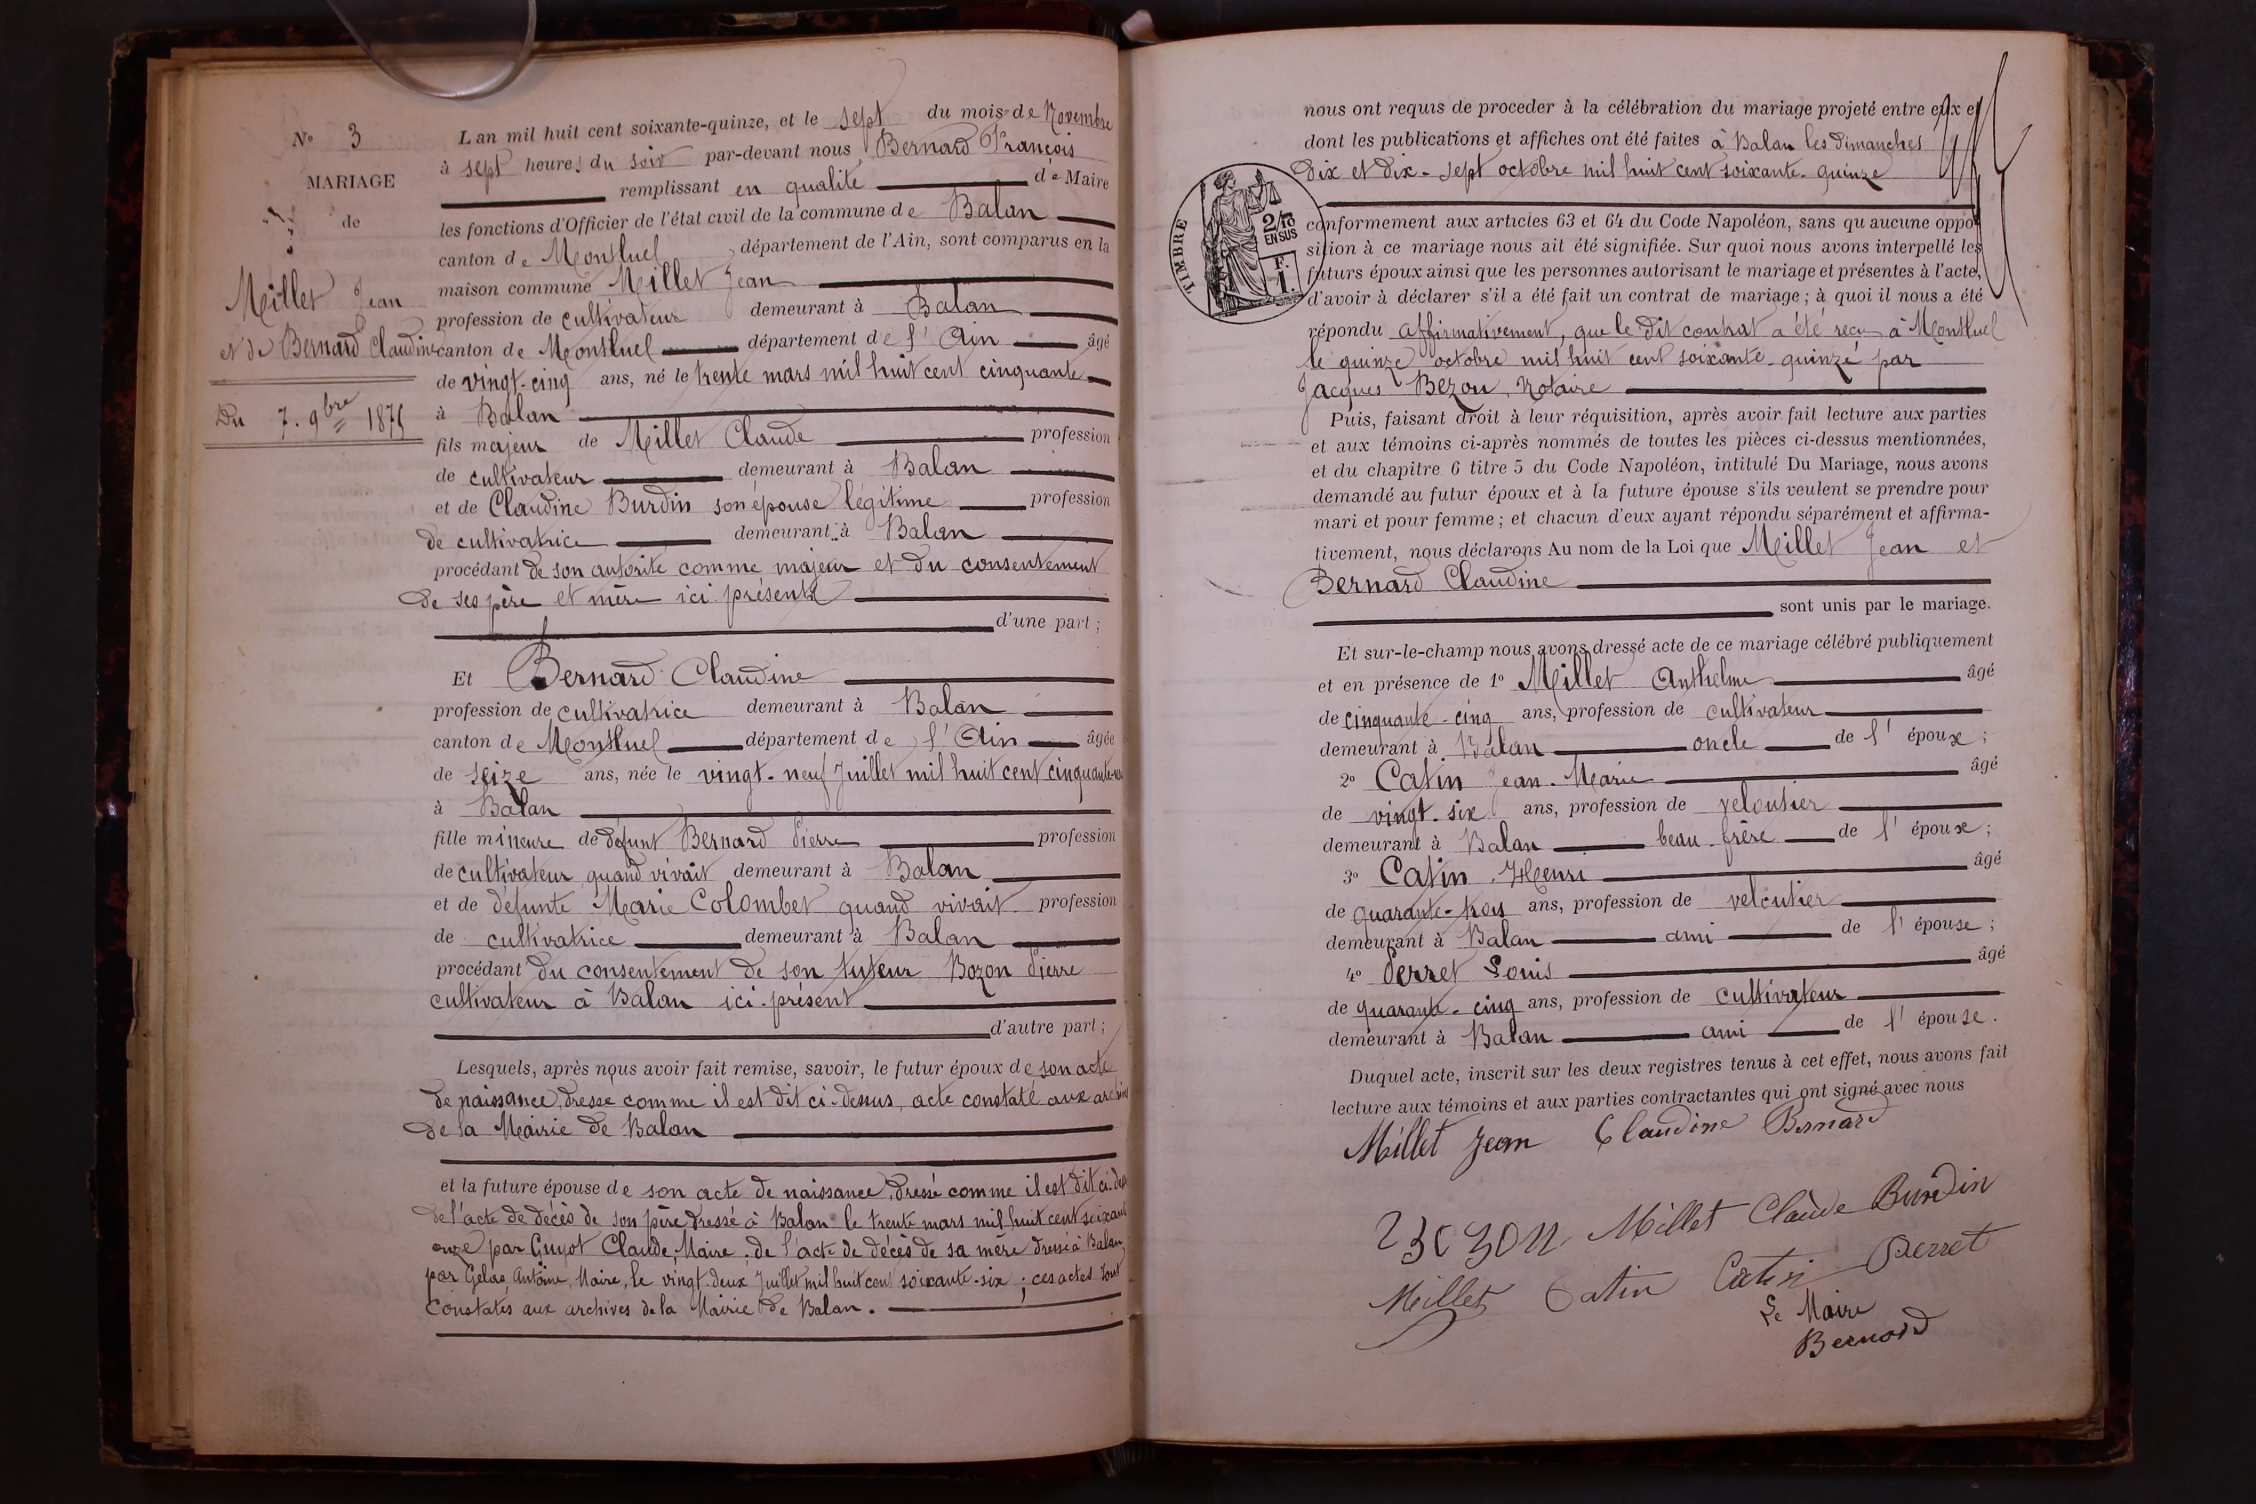 N° 3
MARIAGE
de
Millet Jean
et de Bernard Claudine
Du 7. 9bre 1875
L'an mil huit cent soixante-quinze, et le sept du mois de Novembre
à sept heures du soir par-devant nous Bernard François
remplissant en qualité de Maire
les fonctions d'Officier de l'état civil de la commune de Balan
canton de Montluel, département de l'Ain, sont comparus en la
maison commune Millet Jean
profession de cultivateur demeurant à Balan
canton de Montluel département de l'Ain âgé
de vingt-cinq ans, né le trente mars mil huit cent cinquante
à Balan
fils majeur de Millet Claude profession
de cultivateur demeurant à Balan
et de Claudine Burdin son épouse légitime profession
de cultivatrice demeurant à Balan
procédant de son autorité comme majeur et du consentement
de ses père et mère ici présents
d'une part;
Et Bernard Claudine
profession de cultivatrice demeurant à Balan
canton de Montluel département de l'Ain âgée
de seize ans, née le vingt-neuf Juillet mil huit cent cinquante-
à Balan
fille mineure de défunt Bernard Pierre profession
de cultivateur quand vivait demeurant à Balan
et de défunte Marie Colombet quand vivait profession
de cultivatrice demeurant à Balan
procédant du consentement de son tuteur Bozon Pierre
cultivateur à Balan ici présent
d'autre part;
Lesquels, après nous avoir fait remise, savoir, le futur époux de son acte
de naissance, dressé comme il est dit ci-dessus, acte constaté aux archives
de la Mairie de Balan
et la future épouse de son acte de naissance, dressé comme il est dit ci-dess
de l'acte de décès de son père dressé à Balan le trente mars mil huit cent soixante
onze par Guyot Claude, Maire. de l'acte de décès de sa mère dressé à Balan
par Gelas Antoine, Maire, le vingt-deux Juillet mil huit cent soixante-six; ces actes sont
constatés aux archives de la Mairie de Balan.
nous ont requis de proceder à la célébration du mariage projeté entre eux et
dont les publications et affiches ont été faites à Balan les dimanches
dix et dix-sept octobre mil huit cent soixante-quinze
TIMBRE
2/10
EN SUS
F.
1.
conformement aux articles 63 et 64 du Code Napoléon, sans qu'aucune oppo-
sition à ce mariage nous ait été signifiée. Sur quoi nous avons interpellé les
futurs époux ainsi que les personnes autorisant le mariage et présentes à l'acte,
d'avoir à déclarer s'il a été fait un contrat de mariage; à quoi il nous a été
répondu affirmativement, que le dit contrat a été reçu à Montluel
le quinze octobre mil huit cent soixante-quinze par
Jacques Bezou, Notaire
Puis, faisant droit à leur réquisition, après avoir fait lecture aux parties
et aux témoins ci-après nommés de toutes les pièces ci-dessus mentionnées,
et du chapitre 6 titre 5 du Code Napoléon, intitulé Du Mariage, nous avons
demandé au futur époux et à la future épouse s'ils veulent se prendre pour
mari et pour femme; et chacun d'eux ayant répondu séparément et affirma-
tivement, nous déclarons Au nom de la Loi que Millet Jean et
Bernard Claudine
sont unis par le mariage.
Et sur-le-champ nous avons dressé acte de ce mariage célébré publiquement
et en présence de 1° Millet Anthelme âgé
de cinquante-cinq ans, profession de cultivateur
demeurant à Balan oncle de l'époux;
2° Catin Jean-Marie âgé
de vingt-six ans, profession de veloutier
demeurant à Balan beau-frère de l'époux;
3° Catin Henri âgé
de quarante-trois ans, profession de veloutier
demeurant à Balan ami de l'épouse;
4° Perret Louis âgé
de quarante-cinq ans, profession de cultivateur
demeurant à Balan ami de l'épouse.
Duquel acte, inscrit sur les deux registres tenus à cet effet, nous avons fait
lecture aux témoins et aux parties contractantes qui ont signé avec nous
Millet Jean Claudine Bernard
Bozon Millet Claude Burdin
Millet Catin Catin Perret
Le Maire
Bernard